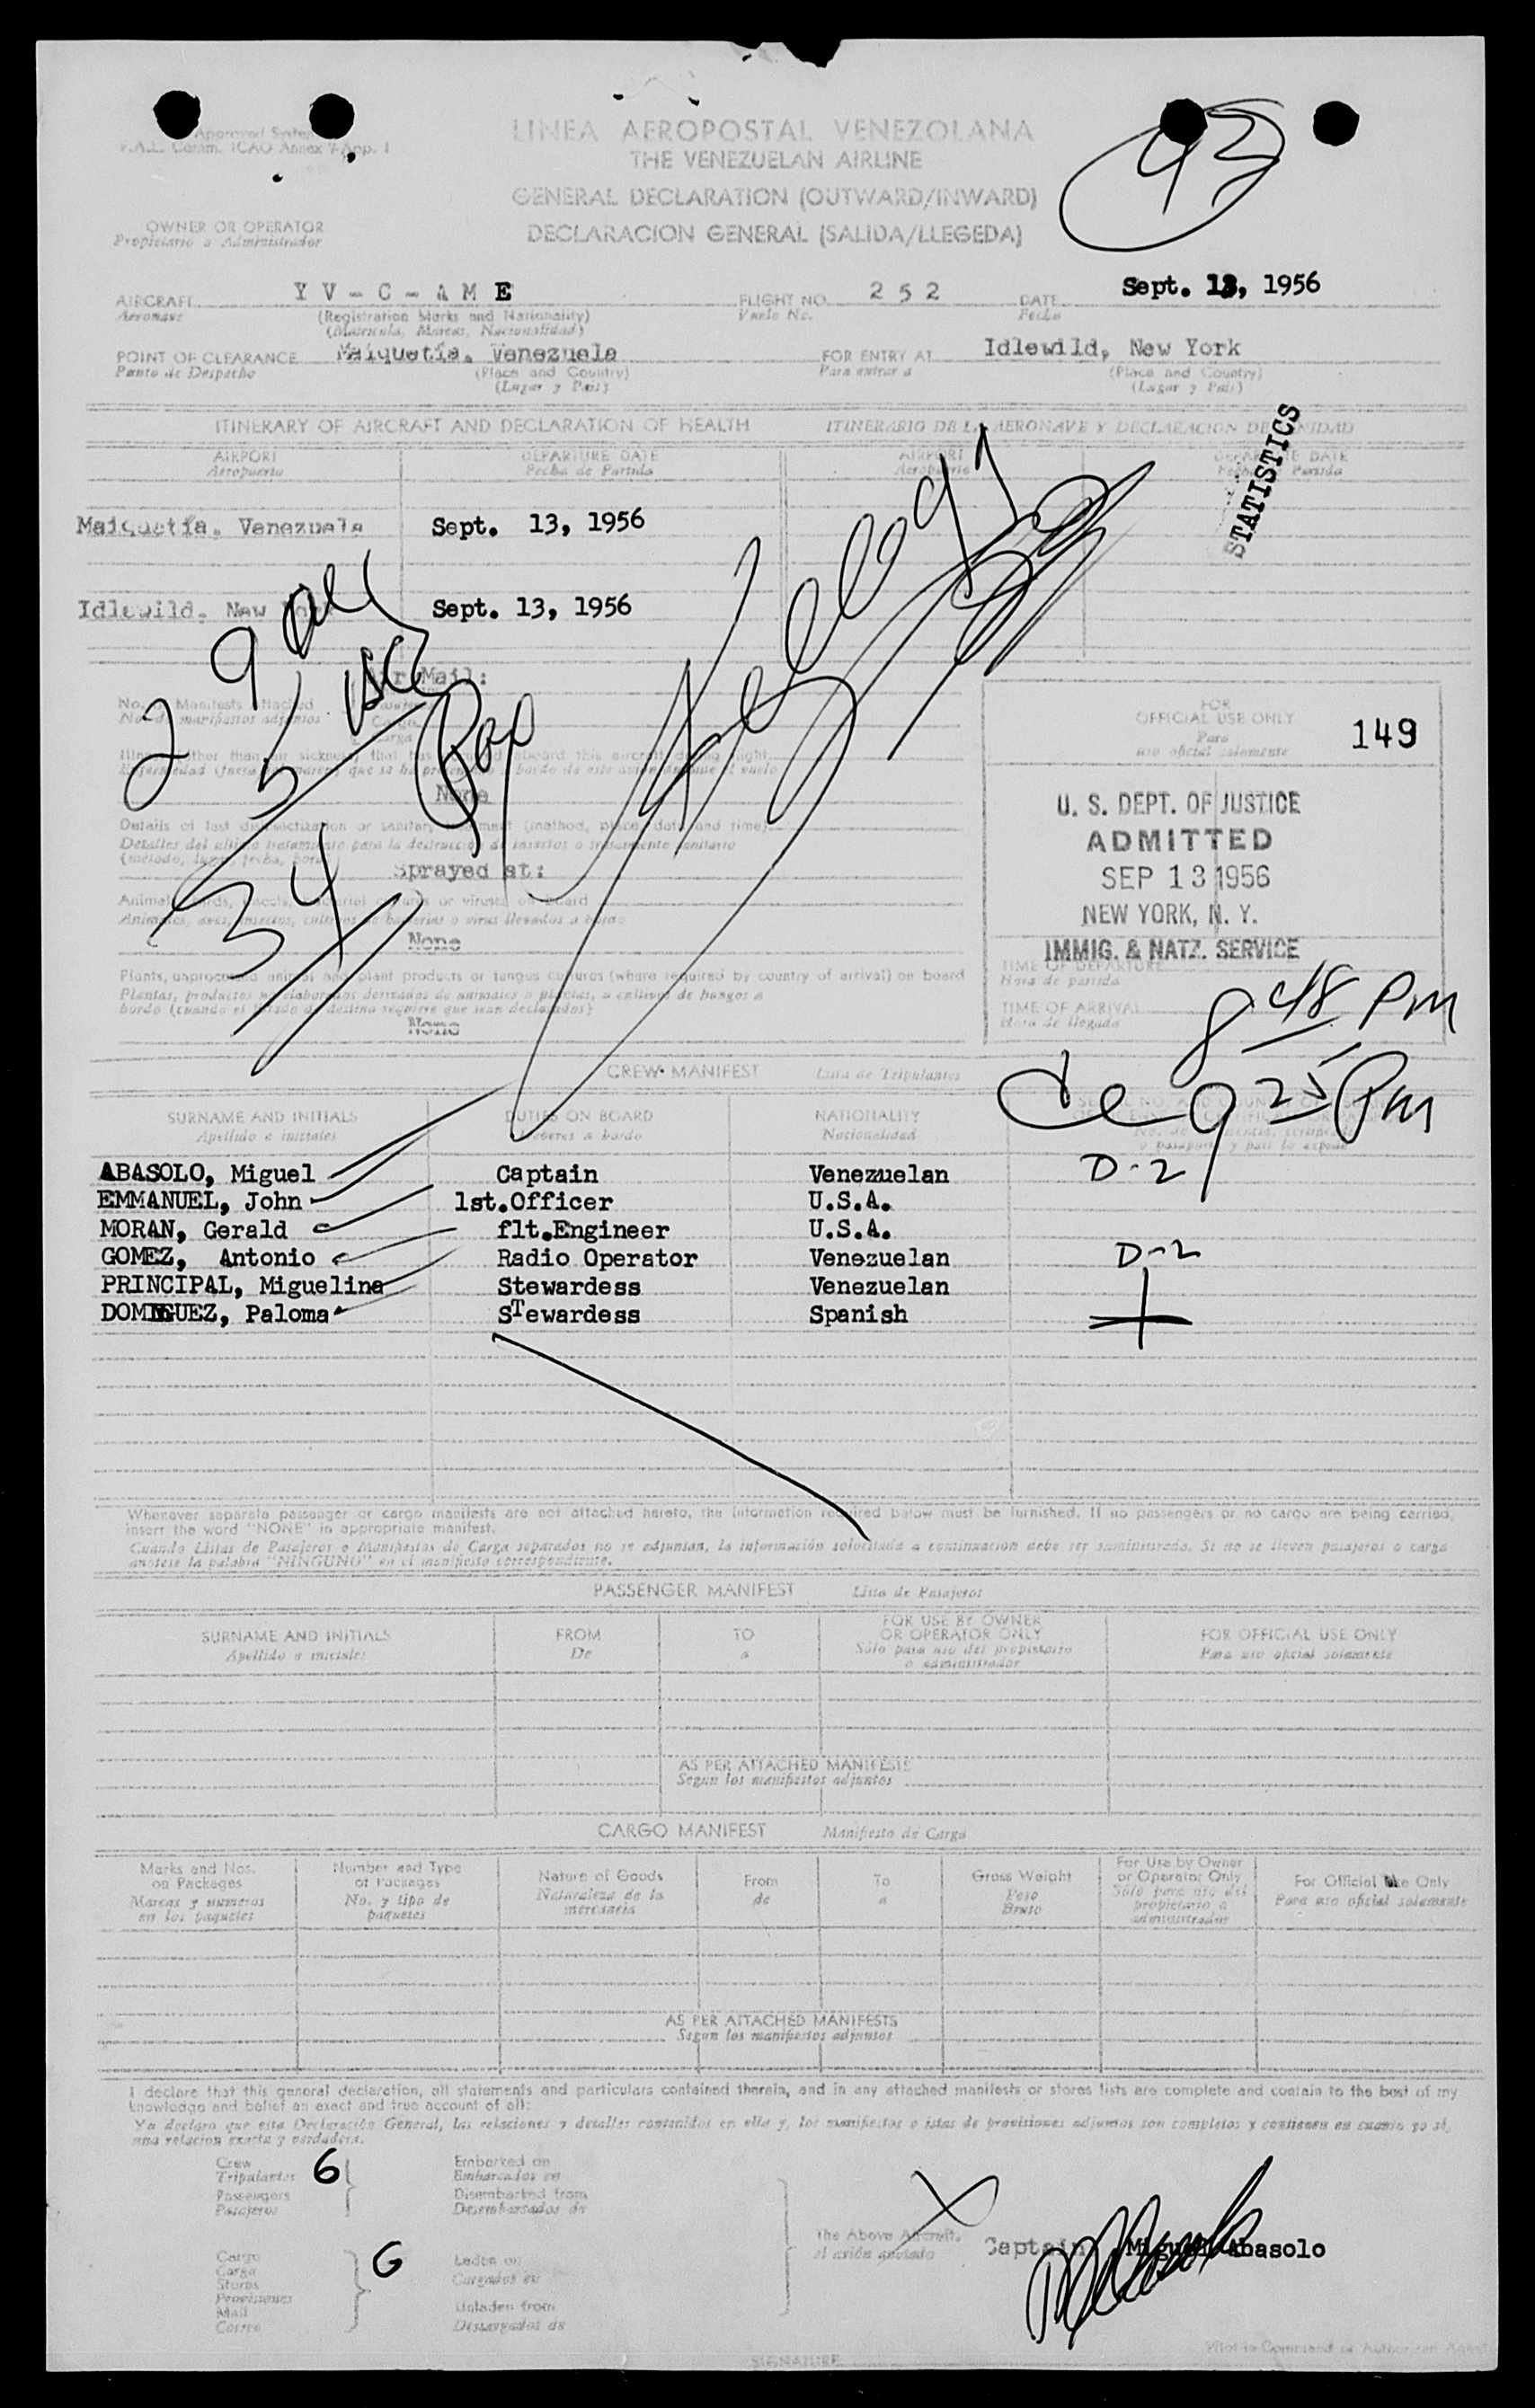 Approved
F.A.L. Comm. ICAO Annex 9 App. 1
LINEA AEROPOSTAL VENEZOLANA
THE VENEZUELAN AIRLINE
GENERAL DECLARATION (OUTWARD/INWARD)
DECLARACION GENERAL (SALIDA/LLEGEDA)
OWNER OR OPERATOR
Propietario o Administrador
AIRCRAFT Y V - C - A M E FLIGHT NO. 2 5 2 DATE Sept. 13, 1956
Aeronave (Registration Marks and Nationality) Vuelo No. Fecha
(Matricula, Marcas, Nacionalidad)
POINT OF CLEARANCE Maiquetia, Venezuela FOR ENTRY AT Idlewild, New York
Punto de Despacho (Place and Country) Para entrar a (Place and Country)
(Lugar y Pais) (Lugar y Pais)
STATISTICS
ITINERARY OF AIRCRAFT AND DECLARATION OF HEALTH ITINERARIO DE LA AERONAVE Y DECLARACION DE SANIDAD
AIRPORT DEPARTURE DATE AIRPORT DEPARTURE DATE
Aeropuerto Fecha de Partida Aeropuerto Fecha de Partida
Maiquetia, Venezuela Sept. 13, 1956
Idlewild, New York Sept. 13, 1956
29
5
34
Air Mail:
No. of Manifests Attached
No. de manifiestos adjuntos
None
Details of last disinsectization or sanitary treatment (method, place, date and time)
Detalles del ultimo tratamiento para la destruccion de insectos o tratamiento sanitario
(metodo, lugar, fecha, hora)
Sprayed at:
Animals, birds, insects, bacterial cultures or viruses on board
Animales, aves, insectos, cultivos de bacterias o virus llevados a bordo
None
Plants, unprocessed animal and plant products or fungus cultures (where required by country of arrival) on board
Plantas, productos no elaborados derivados de animales o plantas, o cultivos de hongos a
bordo (cuando el Estado de destino requiere que sean declarados)
None
FOR
OFFICIAL USE ONLY
Para
uso oficial solamente
149
U. S. DEPT. OF JUSTICE
ADMITTED
SEP 13 1956
NEW YORK, N. Y.
IMMIG. & NATZ. SERVICE
TIME OF DEPARTURE
Hora de partida
TIME OF ARRIVAL
Hora de llegada
8 48 PM
9 25 PM
CREW MANIFEST Lista de Tripulantes
SURNAME AND INITIALS DUTIES ON BOARD NATIONALITY
Apellido e iniciales Deberes a bordo Nacionalidad
ABASOLO, Miguel Captain Venezuelan D-2
EMMANUEL, John 1st.Officer U.S.A.
MORAN, Gerald flt.Engineer U.S.A.
GOMEZ, Antonio Radio Operator Venezuelan D-2
PRINCIPAL, Miguelina Stewardess Venezuelan
DOMINGUEZ, Paloma STewardess Spanish
Whenever separate passenger or cargo manifests are not attached hereto, the information required below must be furnished. If no passengers or no cargo are being carried,
insert the word "NONE" in appropriate manifest.
Cuando Listas de Pasajeros o Manifiestos de Carga separados no se adjuntan, la información solicitada a continuacion debe ser suministrada. Si no se lleven pasajeros o carga
anotese la palabra "NINGUNO" en el manifiesto correspondiente.
PASSENGER MANIFEST Lista de Pasajeros
SURNAME AND INITIALS FROM TO FOR USE BY OWNER OR OPERATOR ONLY FOR OFFICIAL USE ONLY
Apellido e iniciales De a Sólo para uso del propietario o administrador Para uso oficial solamente
AS PER ATTACHED MANIFESTS
Segun los manifiestos adjuntos
CARGO MANIFEST Manifiesto de Carga
Marks and Nos. on Packages Number and Type of Packages Nature of Goods From To Gross Weight For Use by Owner or Operator Only For Official Use Only
Marcas y numeros en los paquetes No. y tipo de paquetes Naturaleza de la mercancia de a Peso Bruto Sólo para uso del propietario o administrador Para uso oficial solamente
AS PER ATTACHED MANIFESTS
Segun los manifiestos adjuntos
I declare that this general declaration, all statements and particulars contained therein, and in any attached manifests or stores lists are complete and contain to the best of my
knowledge and belief an exact and true account of all:
Yo declaro que esta Declaración General, las relaciones y detalles contenidos en ella y, los manifiestos o listas de provisiones adjuntos son completos y contienen en cuanto yo sé,
una relacion exacta y verdadera.
Crew 6 Embarked on
Tripulantes Embarcados en
Passengers Disembarked from
Pasajeros Desembarcados de
The Above Aircraft, Captain Miguel Abasolo
al avión anotado
Cargo Laden on
Carga Cargados en
Stores
Provisiones Unladen from
Mail
Correo Descargados de
Pilot in Command or Authorized Agent
SIGNATURE